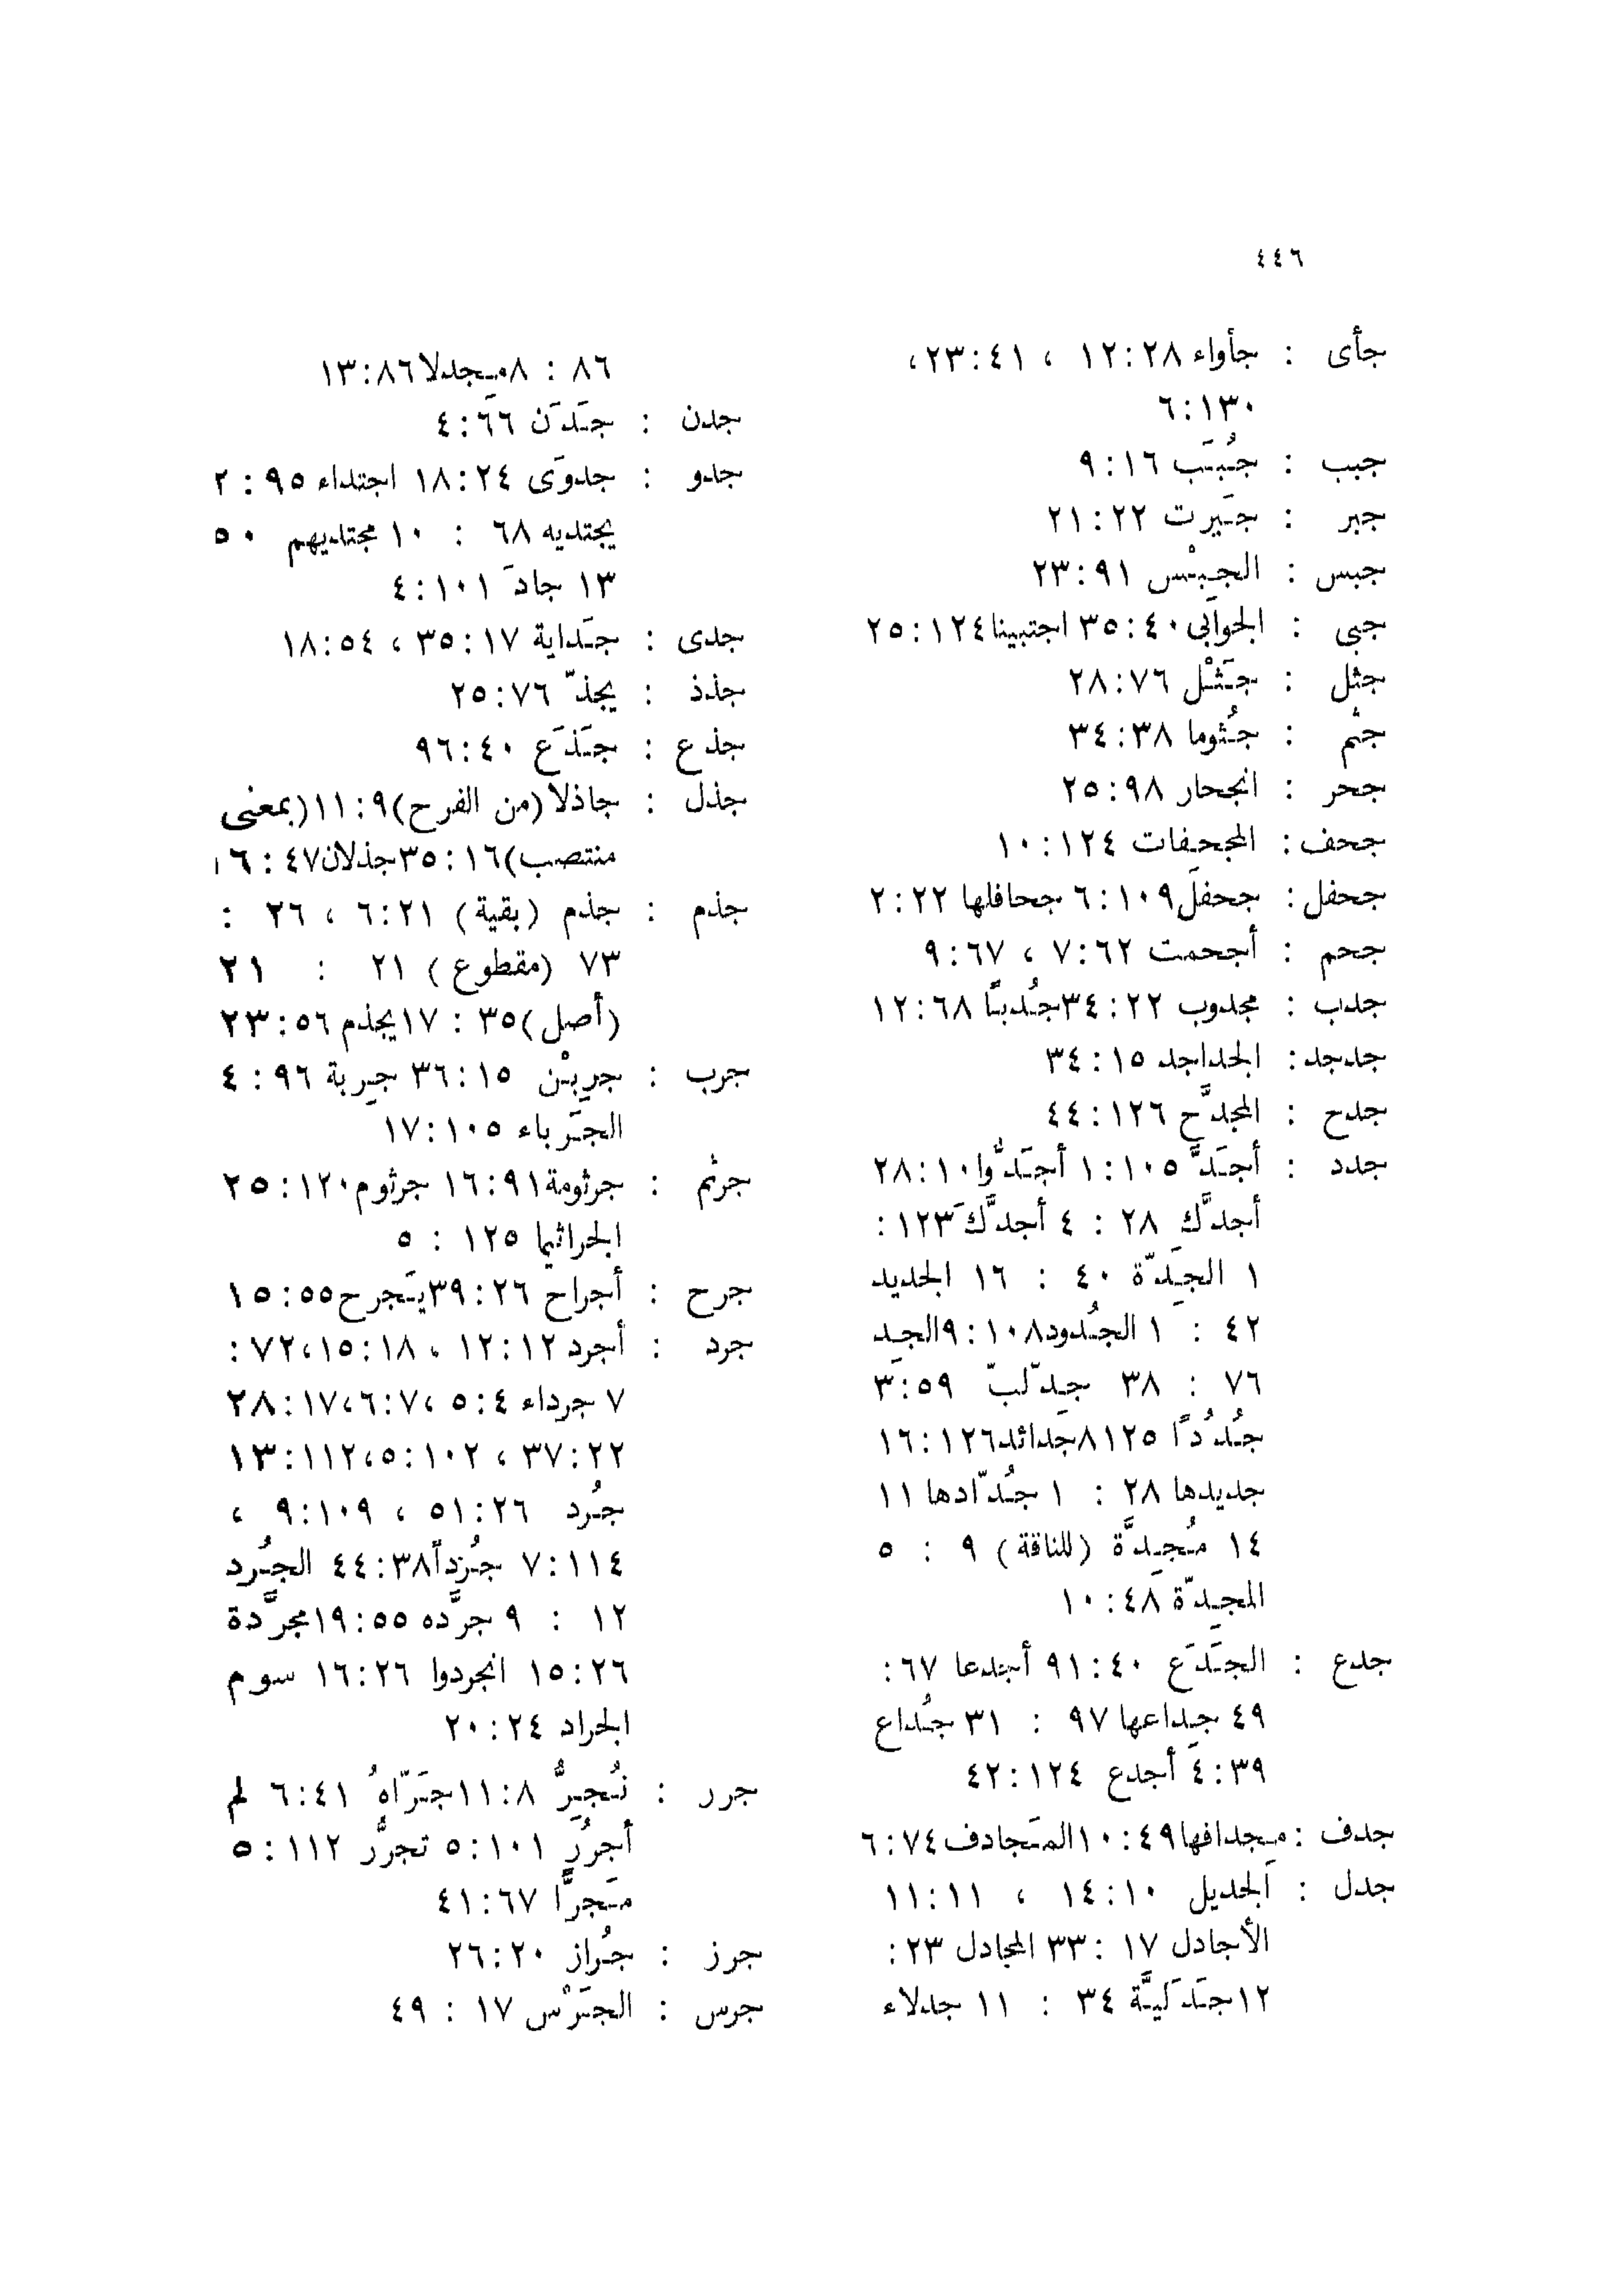 ٤٤٦
جأى : جأواء ١٢:٢٨ ، ٢٣:٤١ ،
٦:١٣٠
جبب : جُبَب ٩:١٦
جبر : جَيرت ٢١:٢٢
جبس : الجِبْس ٢٣:٩١
جبى : الجوابى ٣٥:٤٠ اجتبينا ٢٥:١٢٤
جثل : جَثْل ٢٨:٧٦
جثم : جُثوما ٣٤:٣٨
جحر : انجحار ٢٥:٩٨
جحف : المجحفات ١٠:١٢٤
جحفل : جحفل ٦:١٠٩ جحافلها ٢:٢٢
جحم : أجحمت ٧:٦٢ ، ٩:٦٧
جدب : مجدوب ٣٤:٢٢ جُدبًا ١٢:٦٨
جدجد : الجداجد ٣٤:١٥
جدح : المجدَّح ٤٤:١٢٦
جدد : أجَدَّ ١:١٠٥ أجَدُّوا ٢٨:١٠
أجدَّك ٢٨ : ٤ أجدَّكَ ١٢٣ :
١ الجِدّة ٤٠ : ١٦ الجديد
٤٢ : ١ الجُدود ٩:١٠٨ الجِد
٧٦ : ٣٨ جِدّلبّ ٣:٥٩
جُدُدًا ٨١٢٥ جدائد ١٦:١٢٦
جديدها ٢٨ : ١ جُدّادها ١١
١٤ مُجِدَّة (للناقة) ٩ : ٥
المجِدّة ١٠:٤٨
جدع : الجَدَع ٩١:٤٠ أجدعا ٦٧ :
٤٩ جِداعها ٩٧ : ٣١ جُداع
٤:٣٩ أجدع ٤٢:١٢٤
جدف : مجدافها ١٠:٤٩ المَجادف ٦:٧٤
جدل : الجديل ١٤:١٠ ، ١١:١١
الأجادل ٣٣:١٧ المجادل ٢٣ :
١٢ جَدَليَّة ٣٤ : ١١ جدلاء
٨٦ : ٨ مِجدلا ١٣:٨٦
جدن : جَدَن ٤:٦٦
جدو : جدوَى ١٨:٢٤ اجتداء ٢:٩٥
يجتديه ٦٨ : ١٠ مجتديهم ٥٠
١٣ جادَ ٤:١٠١
جدى : جَداية ٣٥:١٧ ، ١٨:٥٤
جذذ : يجذّ ٢٥:٧٦
جذع : جَذَع ٩٦:٤٠
جذل : جاذلا (من الفرح) ١١:٩ (بمعنى
منتصب) ٣٥:١٦ جذلان ٤٧ : ١٦
جذم : جذم (بقية) ٦:٢١ ، ٢٦ :
٧٣ (مقطوع) ٢١ : ٢١
(أصل) ٣٥ : ١٧ يجذم ٢٣:٥٦
جرب : جرِبْن ٣٦:١٥ جِربة ٤:٩٦
الجَرباء ١٧:١٠٥
جرثم : جرثومة ١٦:٩١ جرثوم ٢٥:١٢٠
الجراثيما ١٢٥ : ٥
جرح : أجراح ٣٩:٢٦ يَجرح ١٥:٥٥
جرد : أجرد ١٢:١٢ ، ١٥:١٨ ، ٧٢ :
٧ جرداء ٥:٤ ، ٦:٧ ، ٢٨:١٧
٣٧:٢٢ ، ٥:١٠٢ ، ١٣:١١٢
جُرد ٥١:٢٦ ، ٩:١٠٩ ،
٧:١١٤ جُرداً ٤٤:٣٨ الجُرد
١٢ : ٩ جرَّده ١٩:٥٥ مجرَّدة
١٥:٢٦ انجردوا ١٦:٢٦ سوم
الجراد ٢٠:٢٤
جرر : نُجِرُّ ١١:٨ جَرّاهُ ٦:٤١ لم
أجرُر ٥:١٠١ تجرُّ ٥:١١٢
مَجرًّا ٤١:٦٧
جرز : جُراز ٢٦:٢٠
جرس : الجَرْس ١٧ : ٤٩